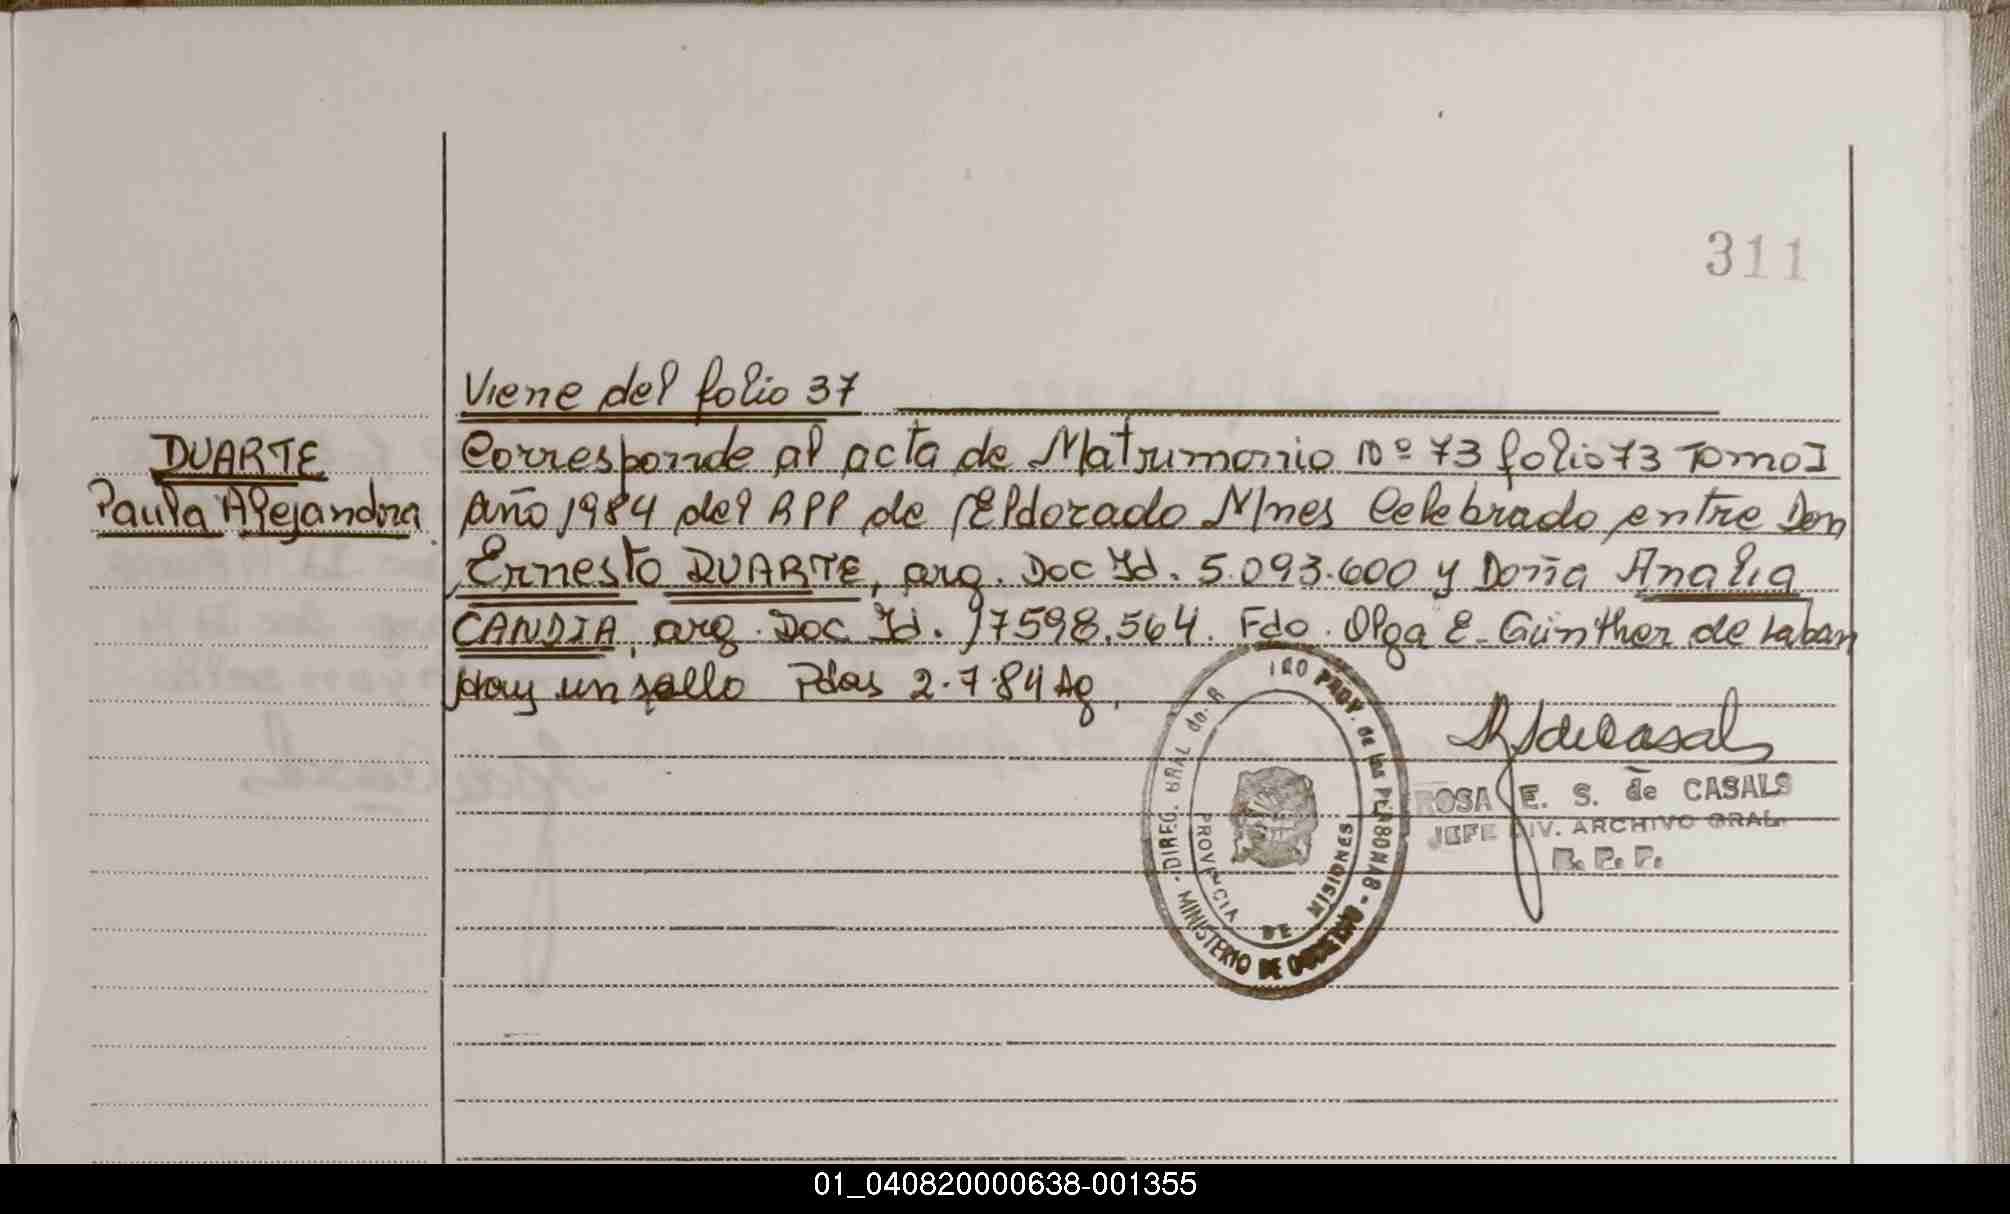 311
Viene del folio 37
DUARTE
Paula Alejandra
Corresponde al acta de Matrimonio Nº 73 folio 73 Tomo I
Año 1984 del RPP de Eldorado Mnes Celebrado entre Don
Ernesto DUARTE, arg. Doc Id. 5.093.600 y Doña Analia
CANDIA, arg. Doc Id. 17598.564. Fdo. Olga E. Günther de Laban
Hay un sello Pdas 2.7.84 Ag
DIREC. GRAL do. R IRO PROV. de las PERSONAS
MINISTERIO DE GOBIERNO
PROVINCIA DE MISIONES
ROSA E. S. de CASALS
JEFE DIV. ARCHIVO GRAL.
R. P. P.
01_040820000638-001355